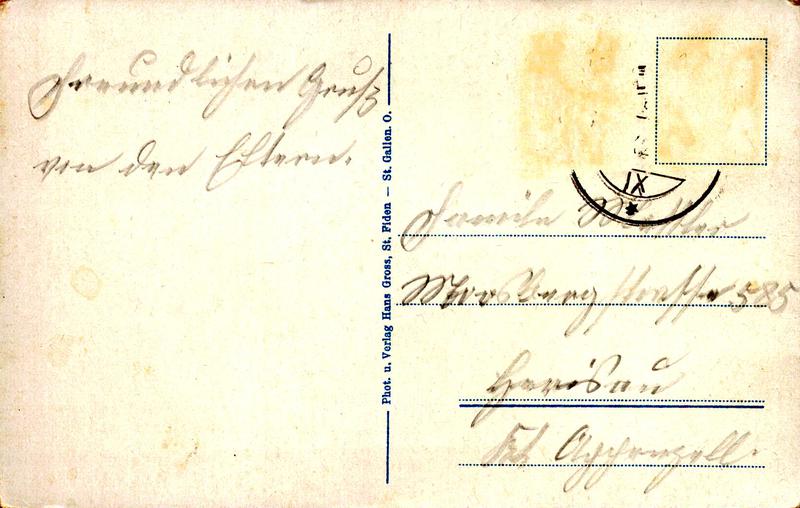 Freundlichen Gruß
von den Eltern.
Phot. u. Verlag Hans Gross, St. Fiden — St. Gallen. O.
IX
Familie
Moosbergstrasse 585
Herisau
Kt Appenzell.